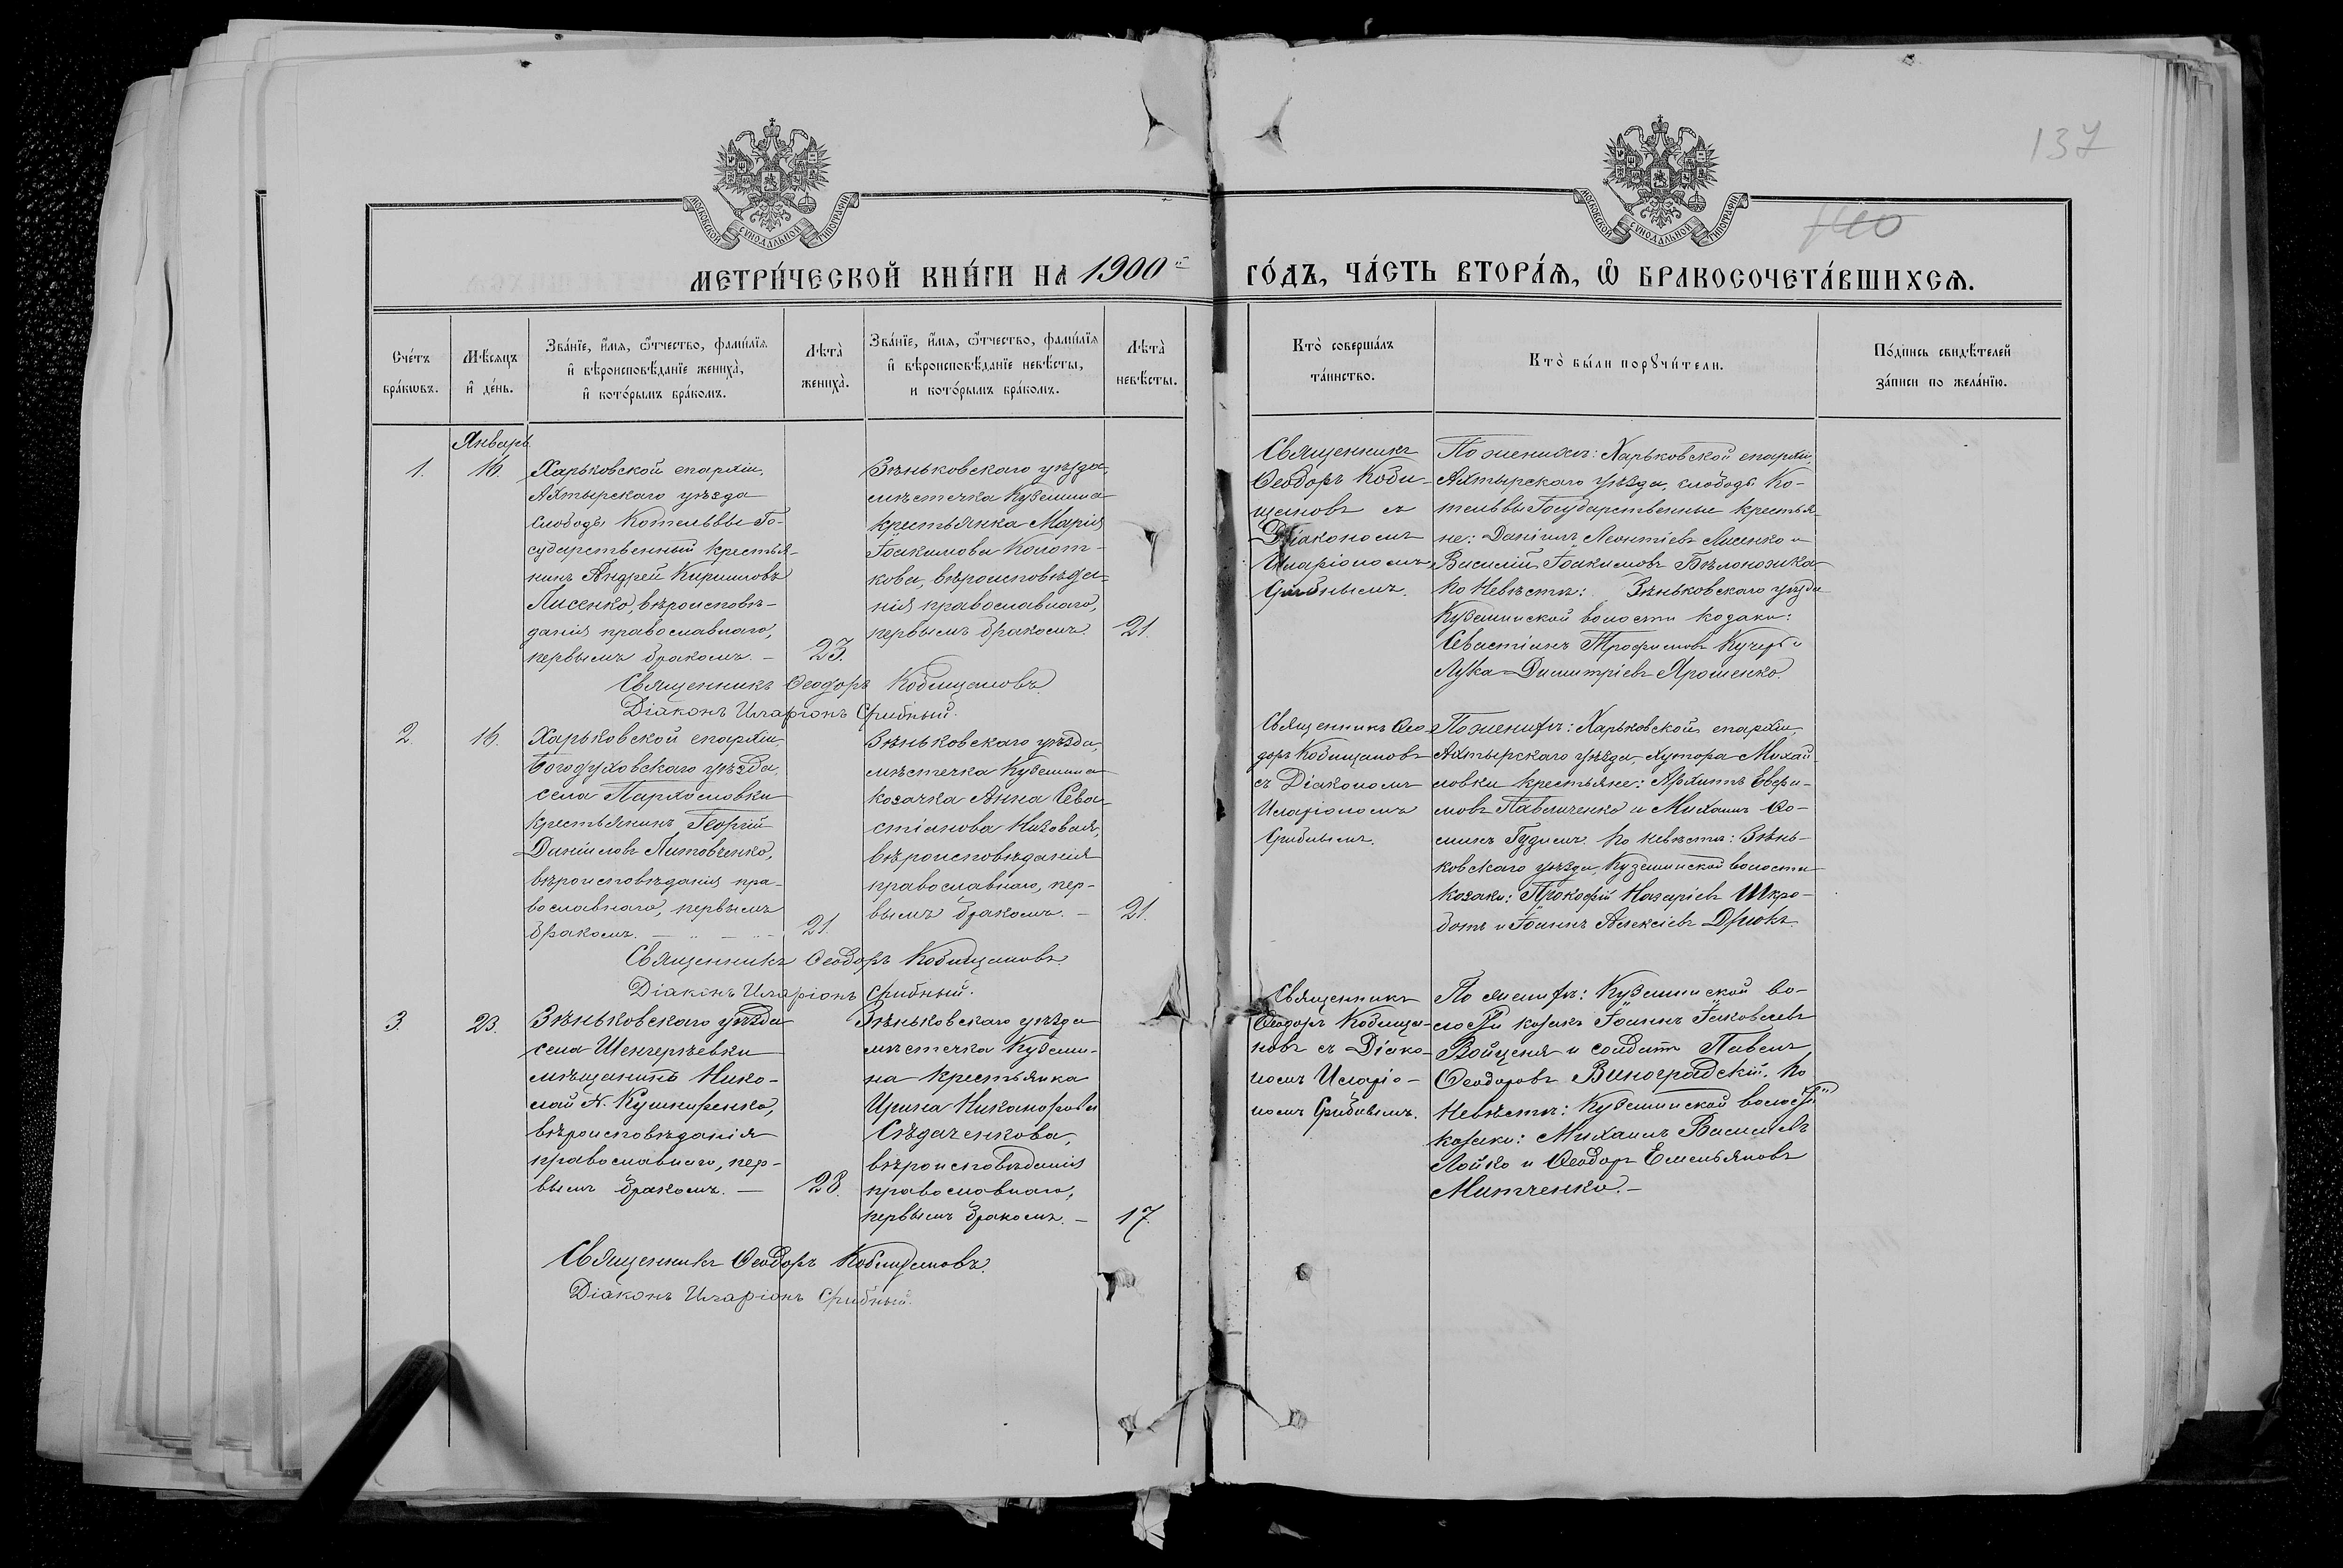 137
140
МОСКОВСКОЙ СѴНОДАЛЬНОЙ ТИПОГРАФІИ
МОСКОВСКОЙ СѴНОДАЛЬНОЙ ТИПОГРАФІИ
МЕТРИ́ЧЕСКОЙ КНИ́ГИ НА 1900й ГО́ДЪ, ЧА́СТЬ ВТОРА́Ѧ, Ѡ БРАКОСОЧЕТА́ВШИХСѦ.
Сче́тъ бра́кѡвъ.
Мѣ́сяцъ и҆ де́нь.
Зва́нїе, и҆́мѧ, ѻ҆́тчество, фами́лїѧ
и҆ вѣроисповѣ́данїе жениха̀,
и҆ кото́рымъ бра́комъ.
Лѣта̀
жениха̀.
Зва́нїе, и҆́мѧ, ѻ҆́тчество, фами́лїѧ
и҆ вѣроисповѣ́данїе невѣ́сты,
и кото́рымъ бра́комъ.
Лѣта̀
невѣ́сты.
Кто̀ соверша́лъ
та́инство.
Кто̀ бы́ли порꙋчи́тели.
По́дпись свидѣ́телей
за́писи по жела́нїю.
Январь
1.
16.
Харьковской епархіи,
Ахтырскаго уѣзда
слободы Котельвы Го-
сударственный крестья-
нинъ Андрей Кирилловъ
Лисенко, вѣроисповѣ-
данія православнаго,
первымъ бракомъ. —
23.
Зѣньковскаго уѣзда,
мѣстечка Куземина
крестьянка Марія
Іоакимова Колот-
кова, вѣроисповѣда-
нія православнаго,
первымъ бракомъ.
21.
Священникъ Ѳеодоръ Кобищановъ
Діаконъ Иларіонъ Срибный.
Священникъ
Ѳеодоръ Коби-
щановъ съ
Діакономъ
Иларіономъ
Срибнымъ.
По женихѣ: Харьковской епархіи,
Ахтырскаго уѣзда, слободы Ко-
тельвы Государственные крестья-
не: Даніилъ Леонтіевъ Лисенко и
Василій Іоакимовъ Бѣлоножка
по невѣстѣ: Зѣньковскаго уѣзда
Куземинской волости козаки:
Севастіанъ Трофимовъ Кучеръ и
Лука Димитріевъ Ярошенко.
2.
16.
Харьковской епархіи,
Богодуховскаго уѣзда,
села Пархомовки
крестьянинъ Георгій
Даніиловъ Литовченко,
вѣроисповѣданія пра-
вославнаго, первымъ
бракомъ. —
21.
Зѣньковскаго уѣзда,
мѣстечка Куземина
козачка Анна Сева-
стіанова Низовая,
вѣроисповѣданія
православнаго, пер-
вымъ бракомъ. —
21.
Священникъ Ѳеодоръ Кобищановъ
Діаконъ Иларіонъ Срибный.
Священникъ Ѳео-
доръ Кобищановъ
съ Діакономъ
Иларіономъ
Срибнымъ.
По женихѣ: Харьковской епархіи
Ахтырскаго уѣзда, хутора Михай-
ловки крестьяне: Архиппъ Евфи-
мовъ Павличенко и Михаилъ Ѳо-
минъ Гудимъ. По невѣстѣ: Зѣнь-
ковскаго уѣзда, Куземинской волости
козаки: Прокофій Назаріевъ Шкро-
ботъ и Іоаннъ Алексіевъ Дрюкъ.
3.
23.
Зѣньковскаго уѣзда
села
мѣщанинъ Нико-
лай Кушниренко,
вѣроисповѣданія
православнаго, пер-
вымъ бракомъ. —
28.
Зѣньковскаго уѣзда
мѣстечка Куземи-
на крестьянка
Ирина Никанорова
Сѣдаченкова,
вѣроисповѣданія
православнаго,
первымъ бракомъ. —
17.
Священникъ Ѳеодоръ Кобищановъ.
Діаконъ Иларіонъ Срибный.
Священникъ
Ѳеодоръ Кобища-
новъ съ Діако-
номъ Иларіо-
номъ Срибнымъ.
По женихѣ: Куземинской во-
лости козакъ Іоаннъ Іаковлевъ
Войценя и солдатъ Павелъ
Ѳеодоровъ Виноградскій. По
невѣстѣ: Куземинской волости
козаки: Михаилъ Васильевъ
Лойко и Ѳеодоръ Емельяновъ
Митченко. —